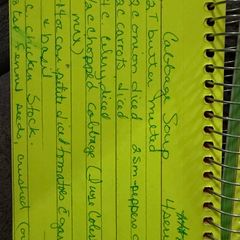 Cabbage Soup
2 T butter melted
2 c onion diced 2 sm peppers
2 c carrots diced
c celery diced
2 c chopped cabbage (I use Coles
mix)
14 oz can petite diced tomatoes
+ basil
c chicken stock.
fennel seeds, crushed (or